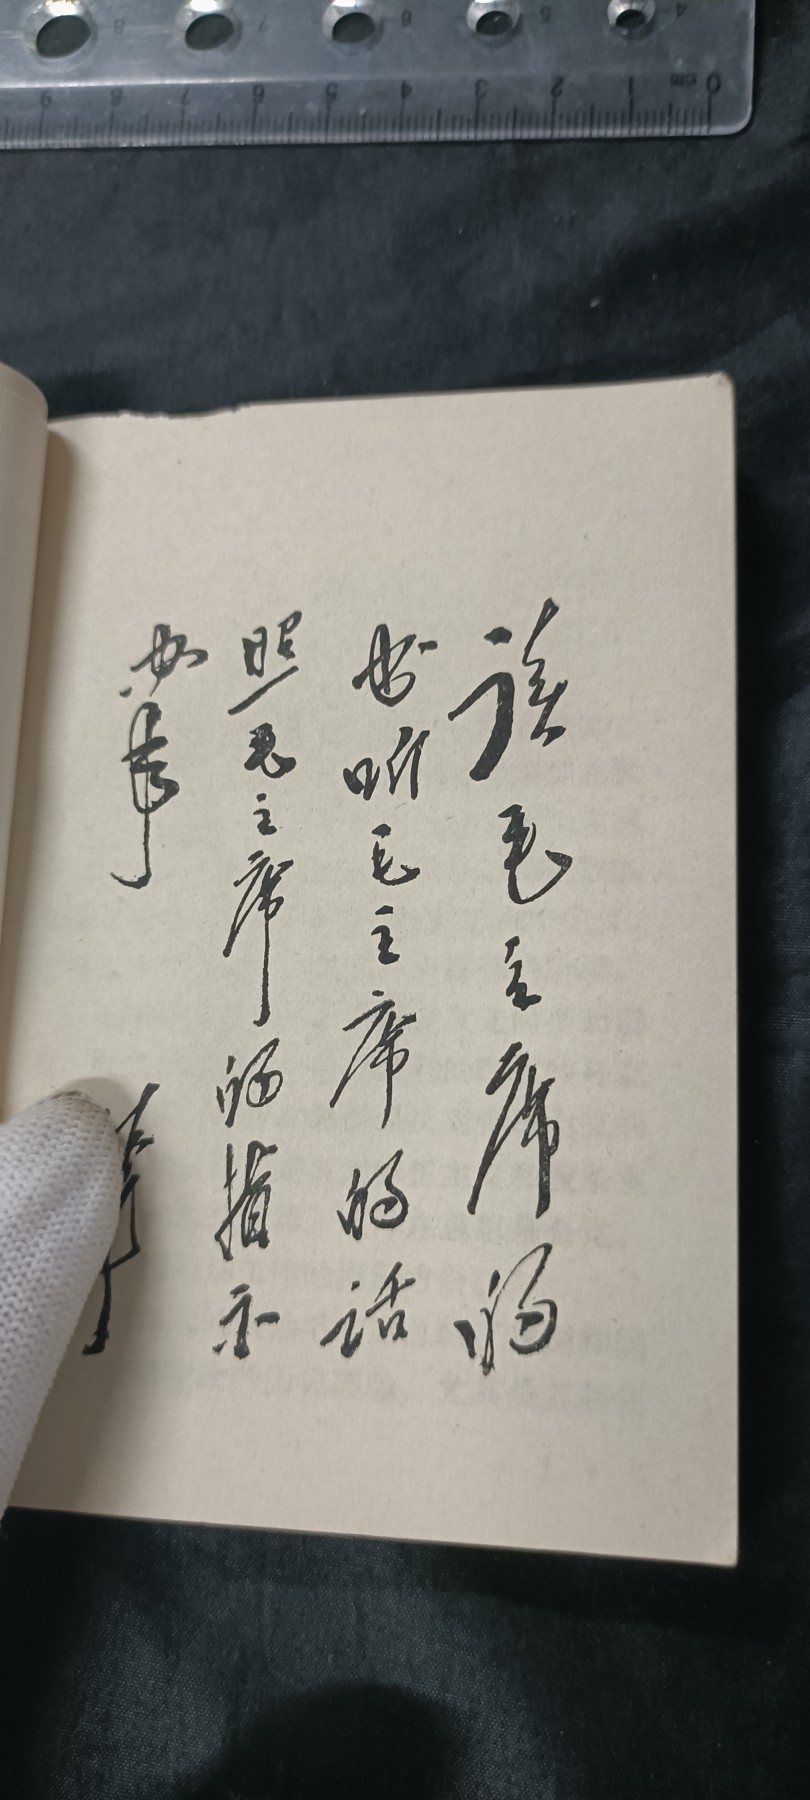 4 5 6 7 8
0 cm 1 2 3 4 5 6 7 8 9
读毛主席的
书听毛主席的话
照毛主席的指示
办事